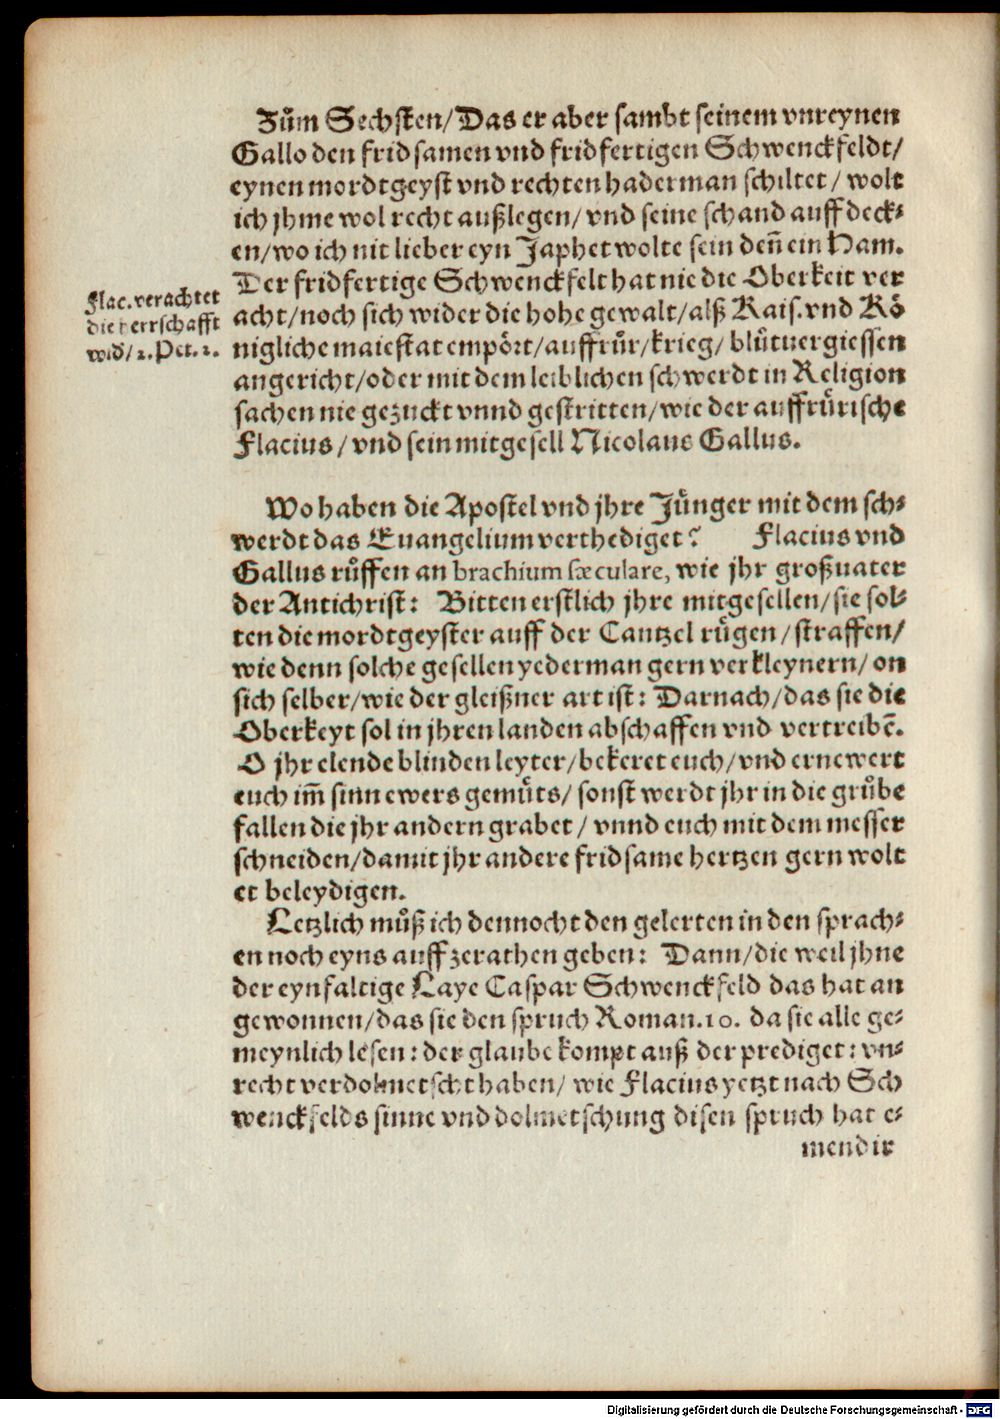 Zům Sechsten/ Das er aber sambt seinem vnreynen
Gallo den fridsamen vnd fridfertigen Schwenckfeldt/
eynen mordtgeyst vnd rechten haderman schiltet/ wolt
ich jhme wol recht außlegen/ vnd seine schand auffdeck⸗
en/ wo ich nit lieber eyn Japhet wolte sein deñ ein Ham.
Der fridfertige Schwenckfelt hat nie die Oberkeit ver
Flac. verachtet
die herrschafft
wid/ 2. Pet. 2.
acht/ noch sich wider die hohe gewalt/ alß Kais. vnd Kö
nigliche maiestat empört/ auffrůr/ krieg/ blůtuergiessen
angericht/ oder mit dem leiblichen schwerdt in Religion
sachen nie gezuckt vnnd gestritten/ wie der auffrürische
Flacius/ vnd sein mitgesell Nicolaus Gallus.
Wo haben die Apostel vnd jhre Jünger mit dem sch⸗
werdt das Euangelium verthediget? Flacius vnd
Gallus růffen an brachium sæculare, wie jhr großuater
der Antichrist: Bitten erstlich jhre mitgesellen/ sie sol⸗
ten die mordtgeyster auff der Cantzel rügen/ straffen/
wie denn solche gesellen yederman gern verkleynern/ on
sich selber/ wie der gleißner art ist: Darnach/ das sie die
Oberkeyt sol in jhren landen abschaffen vnd vertreibē.
O jhr elende blinden leyter/ bekeret euch/ vnd ernewert
euch im̃ sinn ewers gemüts/ sonst werdt jhr in die grůbe
fallen die jhr andern grabet/ vnnd euch mit dem messer
schneiden/ damit jhr andere fridsame hertzen gern wolt
et beleydigen.
Letzlich můß ich dennocht den gelerten in den sprach⸗
en noch eyns auff zerathen geben: Dann/ die weil jhne
der eynfaltige Laye Caspar Schwenckfeld das hat an
gewonnen/ das sie den spruch Roman. 10. da sie alle ge⸗
meynlich lesen: der glaube kompt auß der prediget: vn⸗
recht verdolmetscht haben/ wie Flacius yetzt nach Sch
wenckfelds sinne vnd dolmetschung disen spruch hat e⸗
mendir
Digitalisierung gefördert durch die Deutsche Forschungsgemeinschaft - DFG